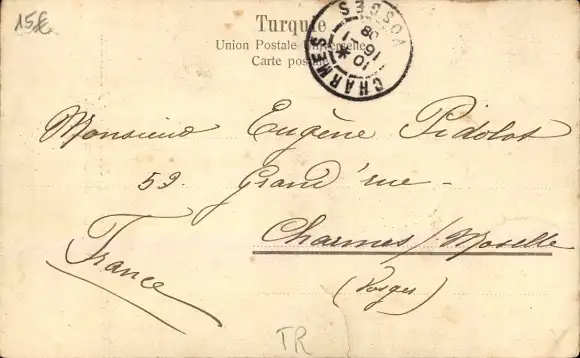 15€
Turquie
Union Postale Universelle
Carte postale
CHARMES
VOSGES
10
16 1
08
Monsieur Eugène Pidolot
59. Grand'rue -
Charmes/Moselle
(Vosges)
France
TR